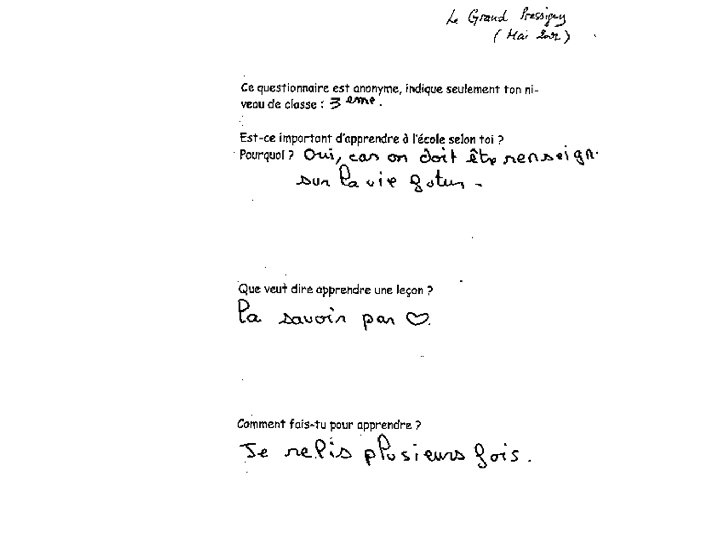 Le Grand Pressigny
(Mai 2002)
Ce questionnaire est anonyme, indique seulement ton ni-
veau de classe : 3 eme.
Est-ce important d'apprendre à l'école selon toi ?
Pourquoi ? Oui, car on doit être renseign
sur la vie futur.
Que veut dire apprendre une leçon ?
la savoir par ♡.
Comment fais-tu pour apprendre ?
Je relis plusieurs fois.